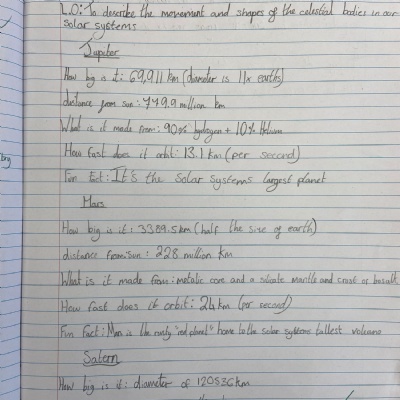 L.O: To describe the movement and shapes of the celestial bodies in our
solar systems
Jupiter
How big is it: 69,911 km (diameter is 11x earths)
distance from sun: 779.9 million km
What is it made from: 90% hydogen + 10% Helium
How fast does it orbit: 13.1 km (per second)
Fun Fact: It's the solar systems largest planet
Mars
How big is it: 3389.5km (half the size of earth)
distance from sun: 228 million km
What is it made from: metalic core and a silicate mantle and crust of basalt
How fast does it orbit: 24 km (per second)
Fun Fact: Mars is the rusty "red planet" home to the solar systems tallest volcano
Satern
How big is it: diameter of 120536km